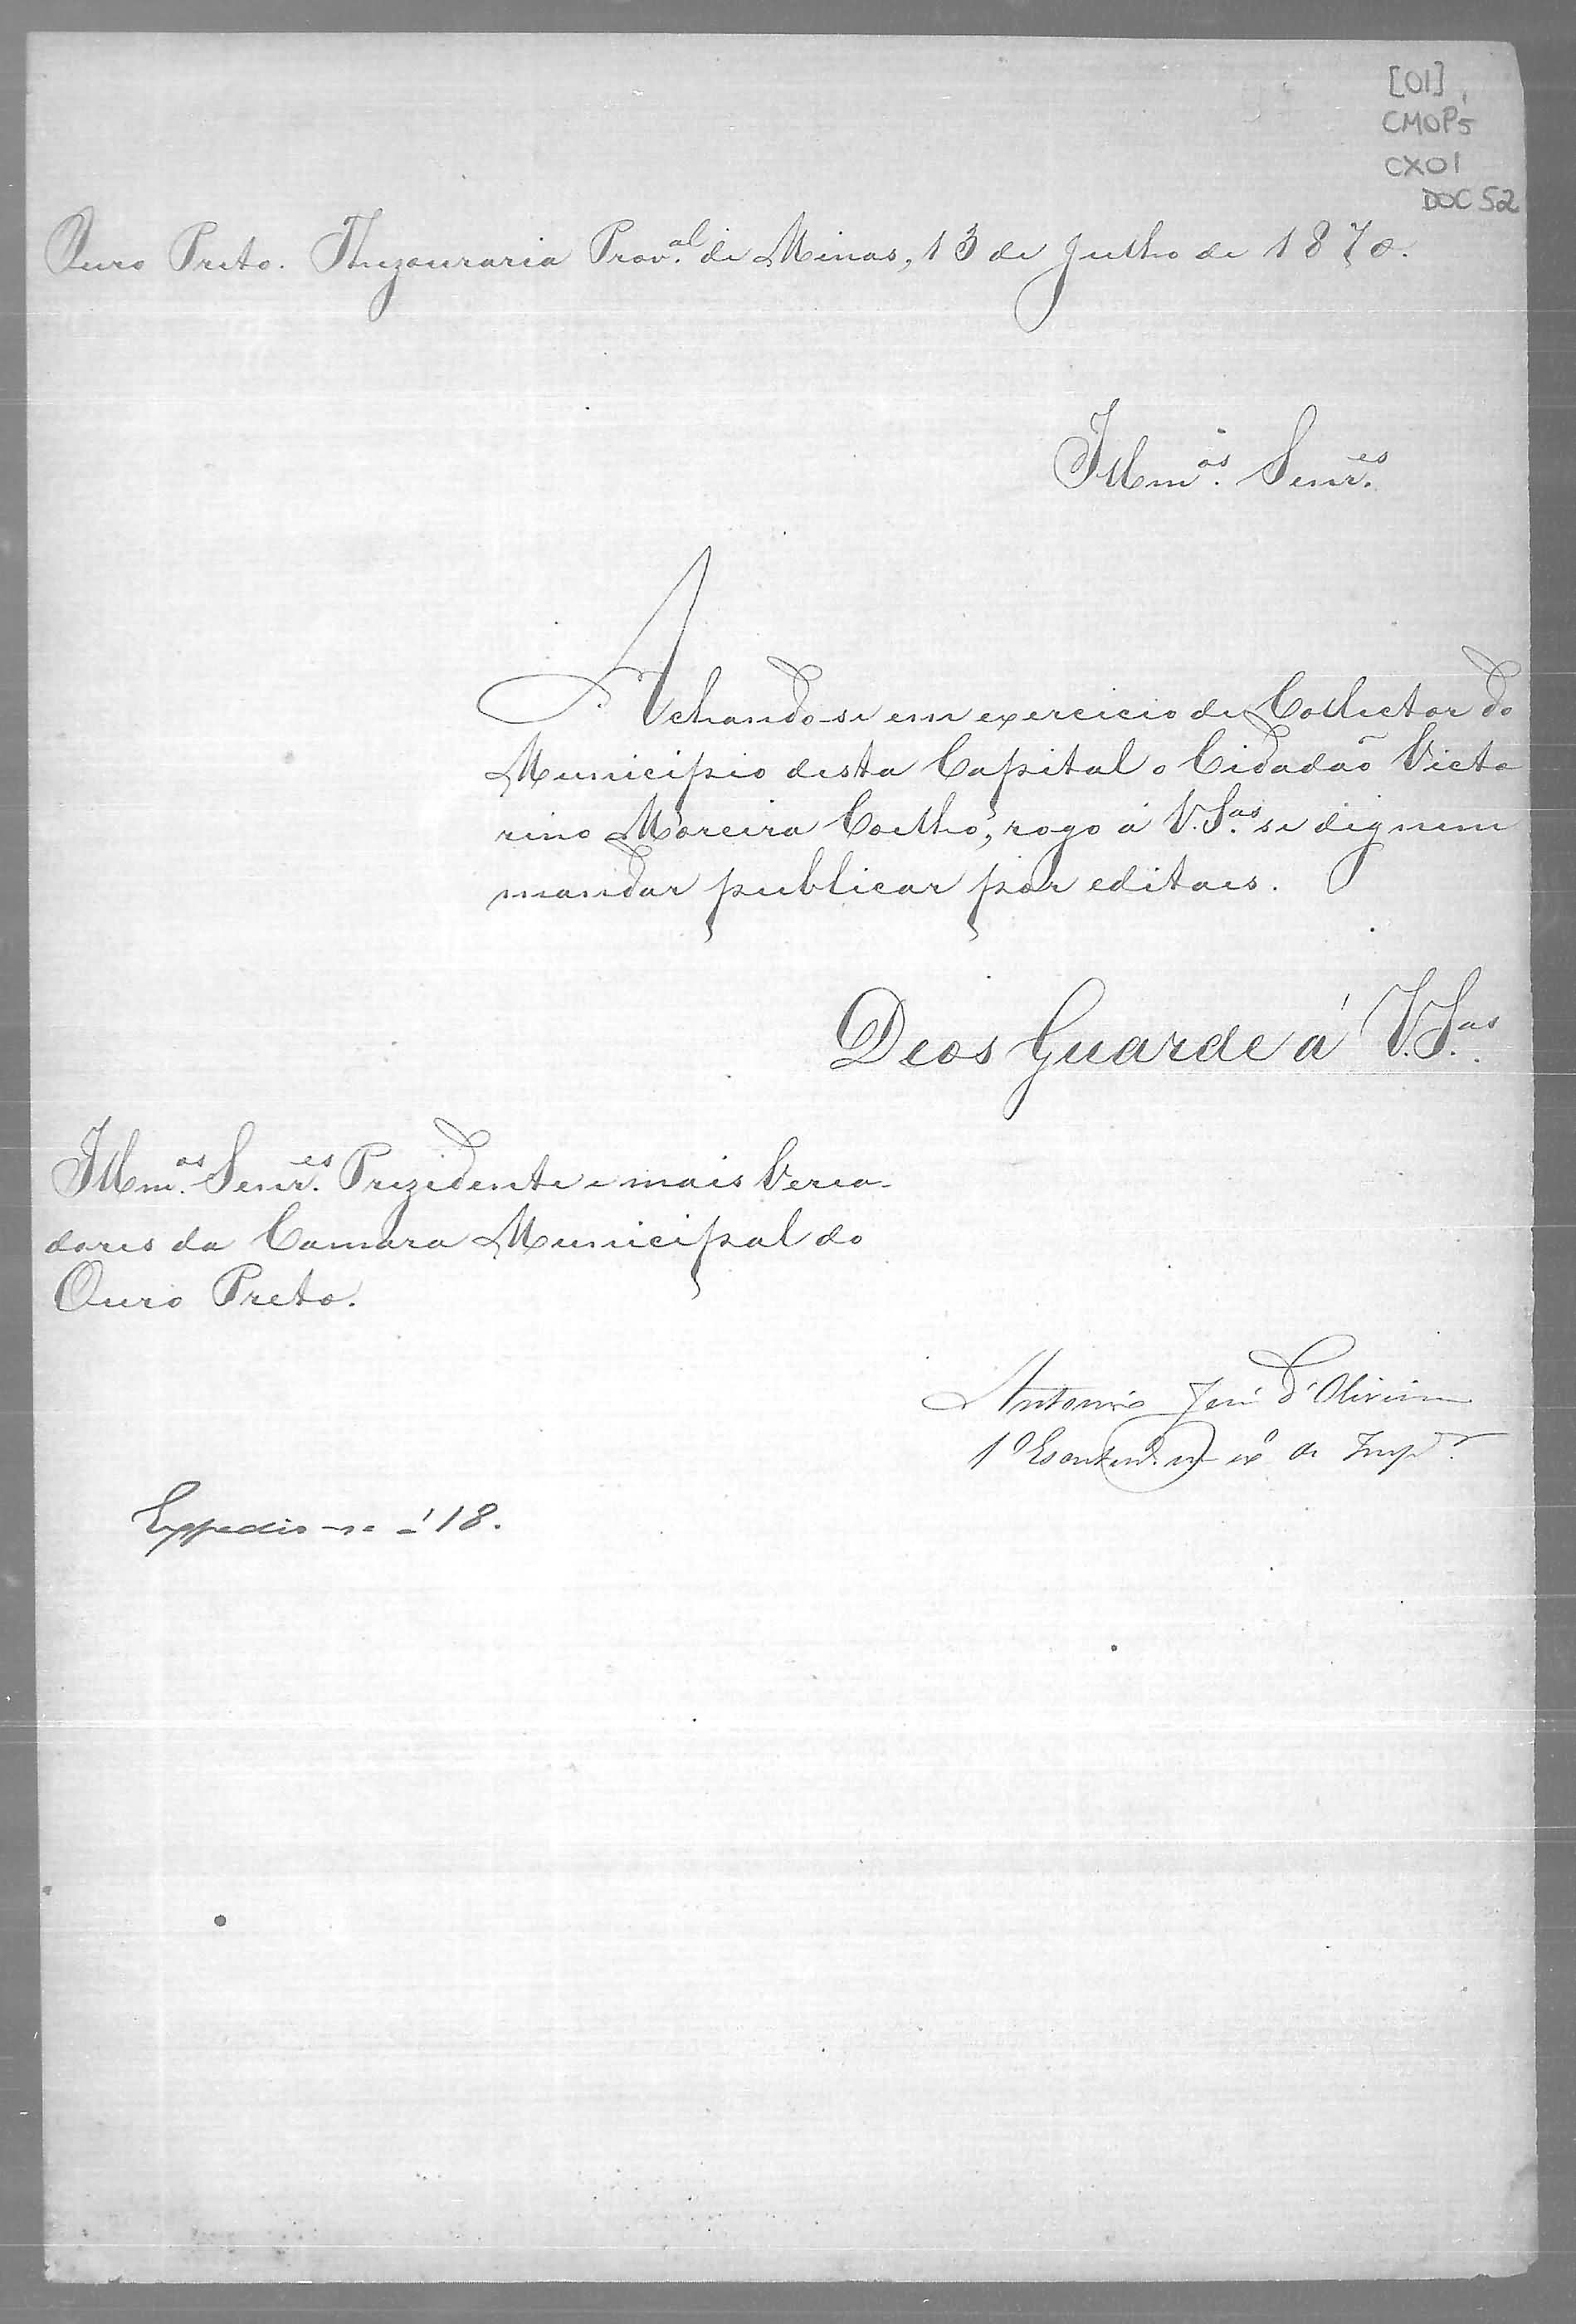 [01]
CMOP5
CX01
DOC 52
Ouro Preto. Thezouraria Prov.al de Minas, 13 de Julho de 1870.
Illm.os Senr.es
Achando-se em exercicio de Collector do
Municipio desta Capital o Cidadão Victo
rino Moreira Coelho, rogo á V.S.as se dignem
mandar publicar por editaes.
Deos Guarde á V.S.as
Illm.os Senr.es Prezidente e mais Verea-
dores da Camara Municipal do
Ouro Preto.
Antonio José d'Oliveira
1º de Insp.r
Expedio-se á 18.